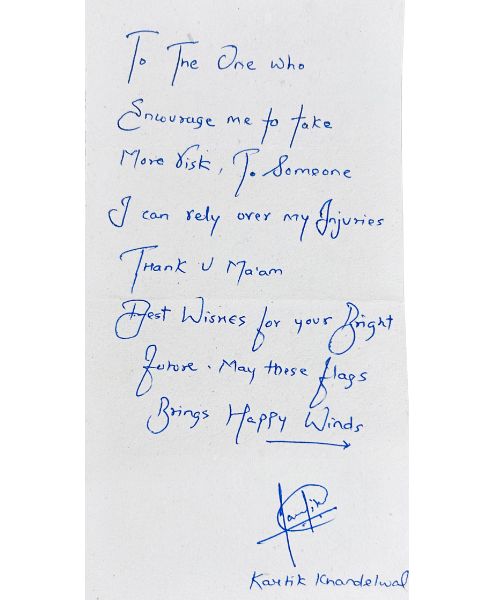 To The One who
Encourage me to take
More Risk, To Someone
I can rely over my Injuries
Thank U Ma'am
Best Wishes for your Bright
future. May these flags
Brings Happy Winds
Kartik
Kartik Khandelwal